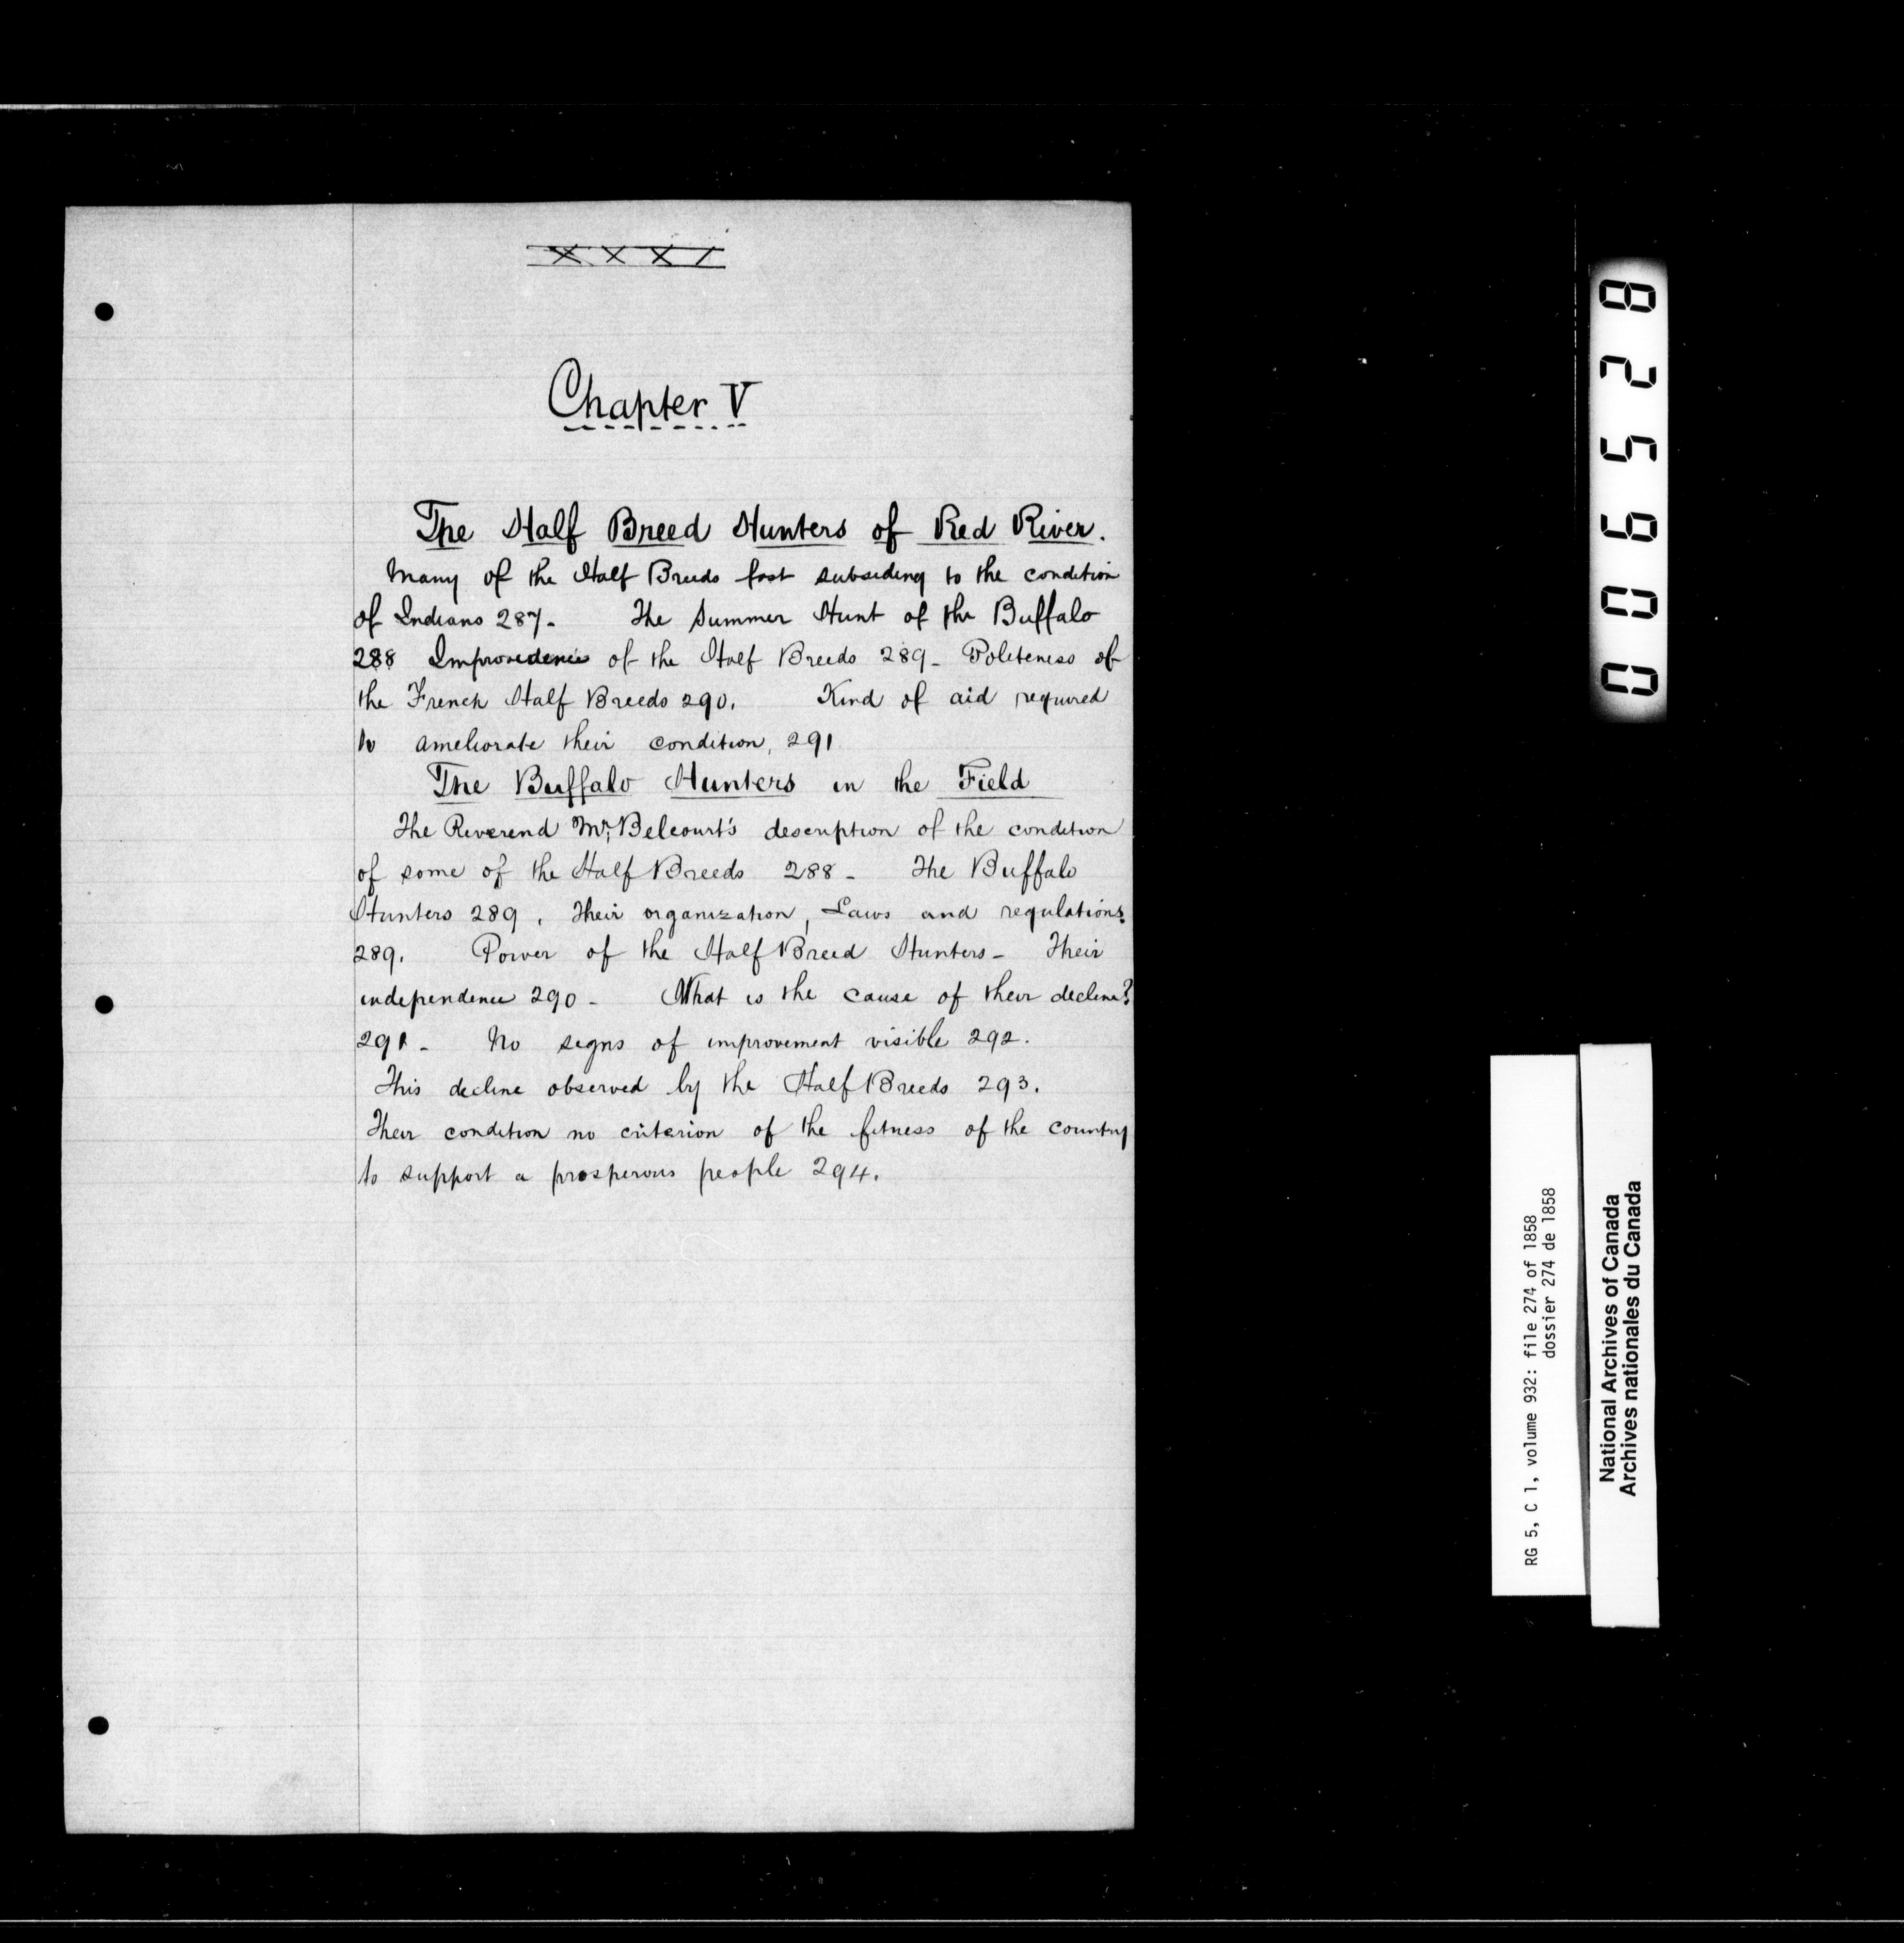 XXXI
Chapter V
The Half Breed Hunters of Red River.
Many of the Half Breeds fast subsiding to the condition
of Indians 287- The Summer Hunt of the Buffalo
288 Improvidence of the Half Breeds 289- Politeness of
the French Half Breeds 290. Kind of aid required
to ameliorate their condition, 291
The Buffalo Hunters in the Field
The Reverend Mr. Belcourt's description of the condition
of some of the Half Breeds 288- The Buffalo
Hunters 289. Their organization, Laws and regulations.
289. Power of the Half Breed Hunters- Their
independence 290- What is the cause of their decline?
291- No signs of improvement visible 292.
This decline observed by the Half Breeds 293.
Their condition no criterion of the fitness of the country
to support a prosperous people 294.
006528
RG 5, C 1, volume 932: file 274 of 1858
dossier 274 de 1858
National Archives of Canada
Archives nationales du Canada